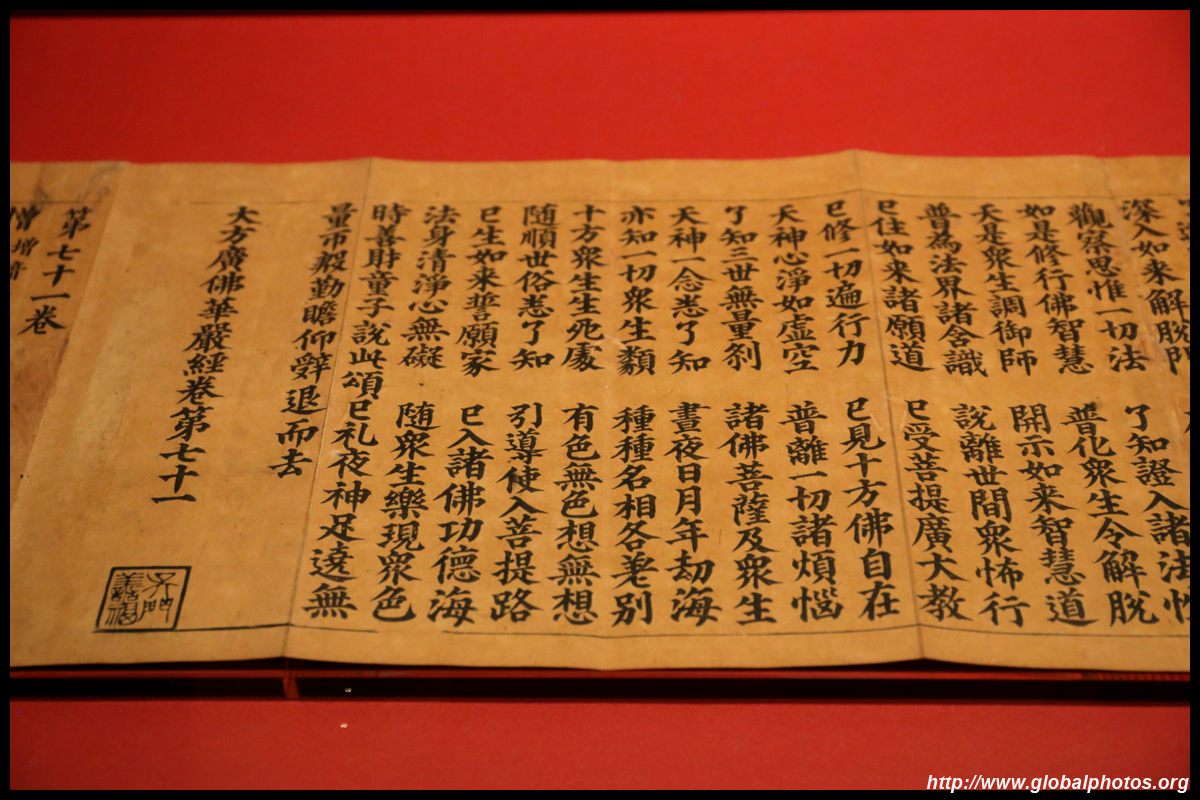 深入如来解脱門
觀察思惟一切法 了知證入諸法性
如是修行佛智慧 普化衆生令解脱
天是衆生調御師 開示如来智慧道
普為法界諸含識 說離世間衆怖行
已住如来諸願道 已受菩提廣大教
已修一切遍行力 已見十方佛自在
天神心淨如虚空 普離一切諸煩惱
了知三世無量刹 諸佛菩薩及衆生
天神一念悉了知 晝夜日月年劫海
亦知一切衆生類 種種名相各差別
十方衆生生死處 有色無色想無想
随順世俗悉了知 引導使入菩提路
已生如来誓願家 已入諸佛功德海
法身清淨心無礙 随衆生樂現衆色
時善財童子說此頌已礼夜神足遶無
量帀殷勤瞻仰辭退而去
大方廣佛華嚴經卷第七十一
第七十一卷
http://www.globalphotos.org